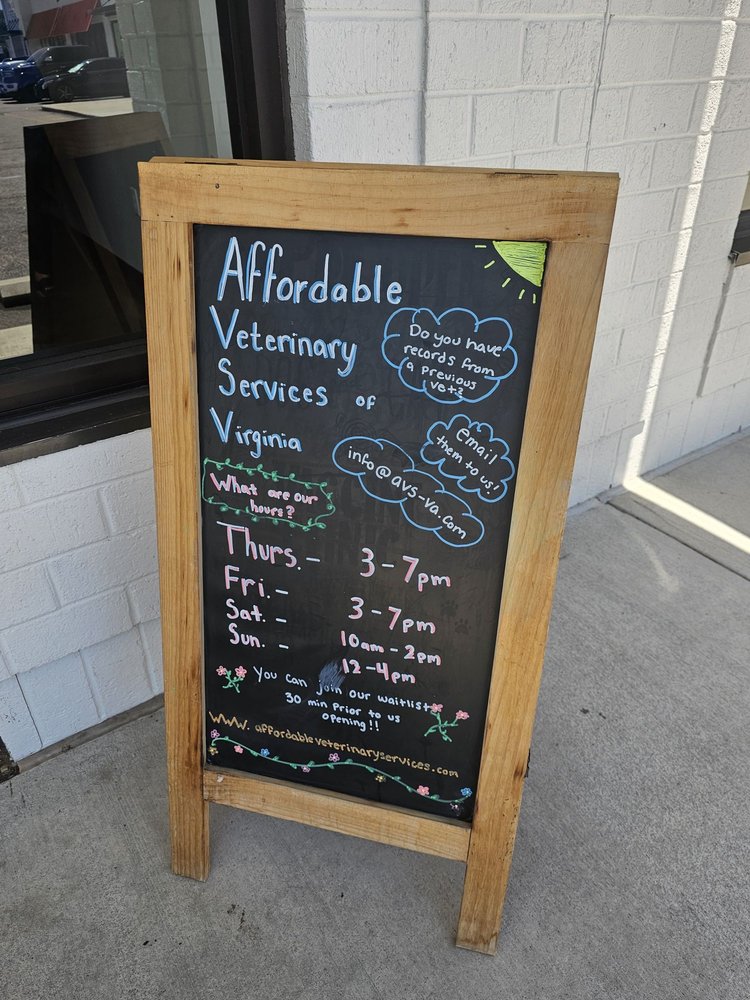 Affordable
Veterinary
Services of
Virginia
Do you have
records from
a previous
vet?
email
them to us!
info@avs-va.com
What are our
hours?
Thurs. - 3-7pm
Fri. - 3-7pm
Sat. - 10am-2pm
Sun. - 12-4pm
You can join our waitlist
30 min prior to us
opening!!
www.affordableveterinaryservices.com